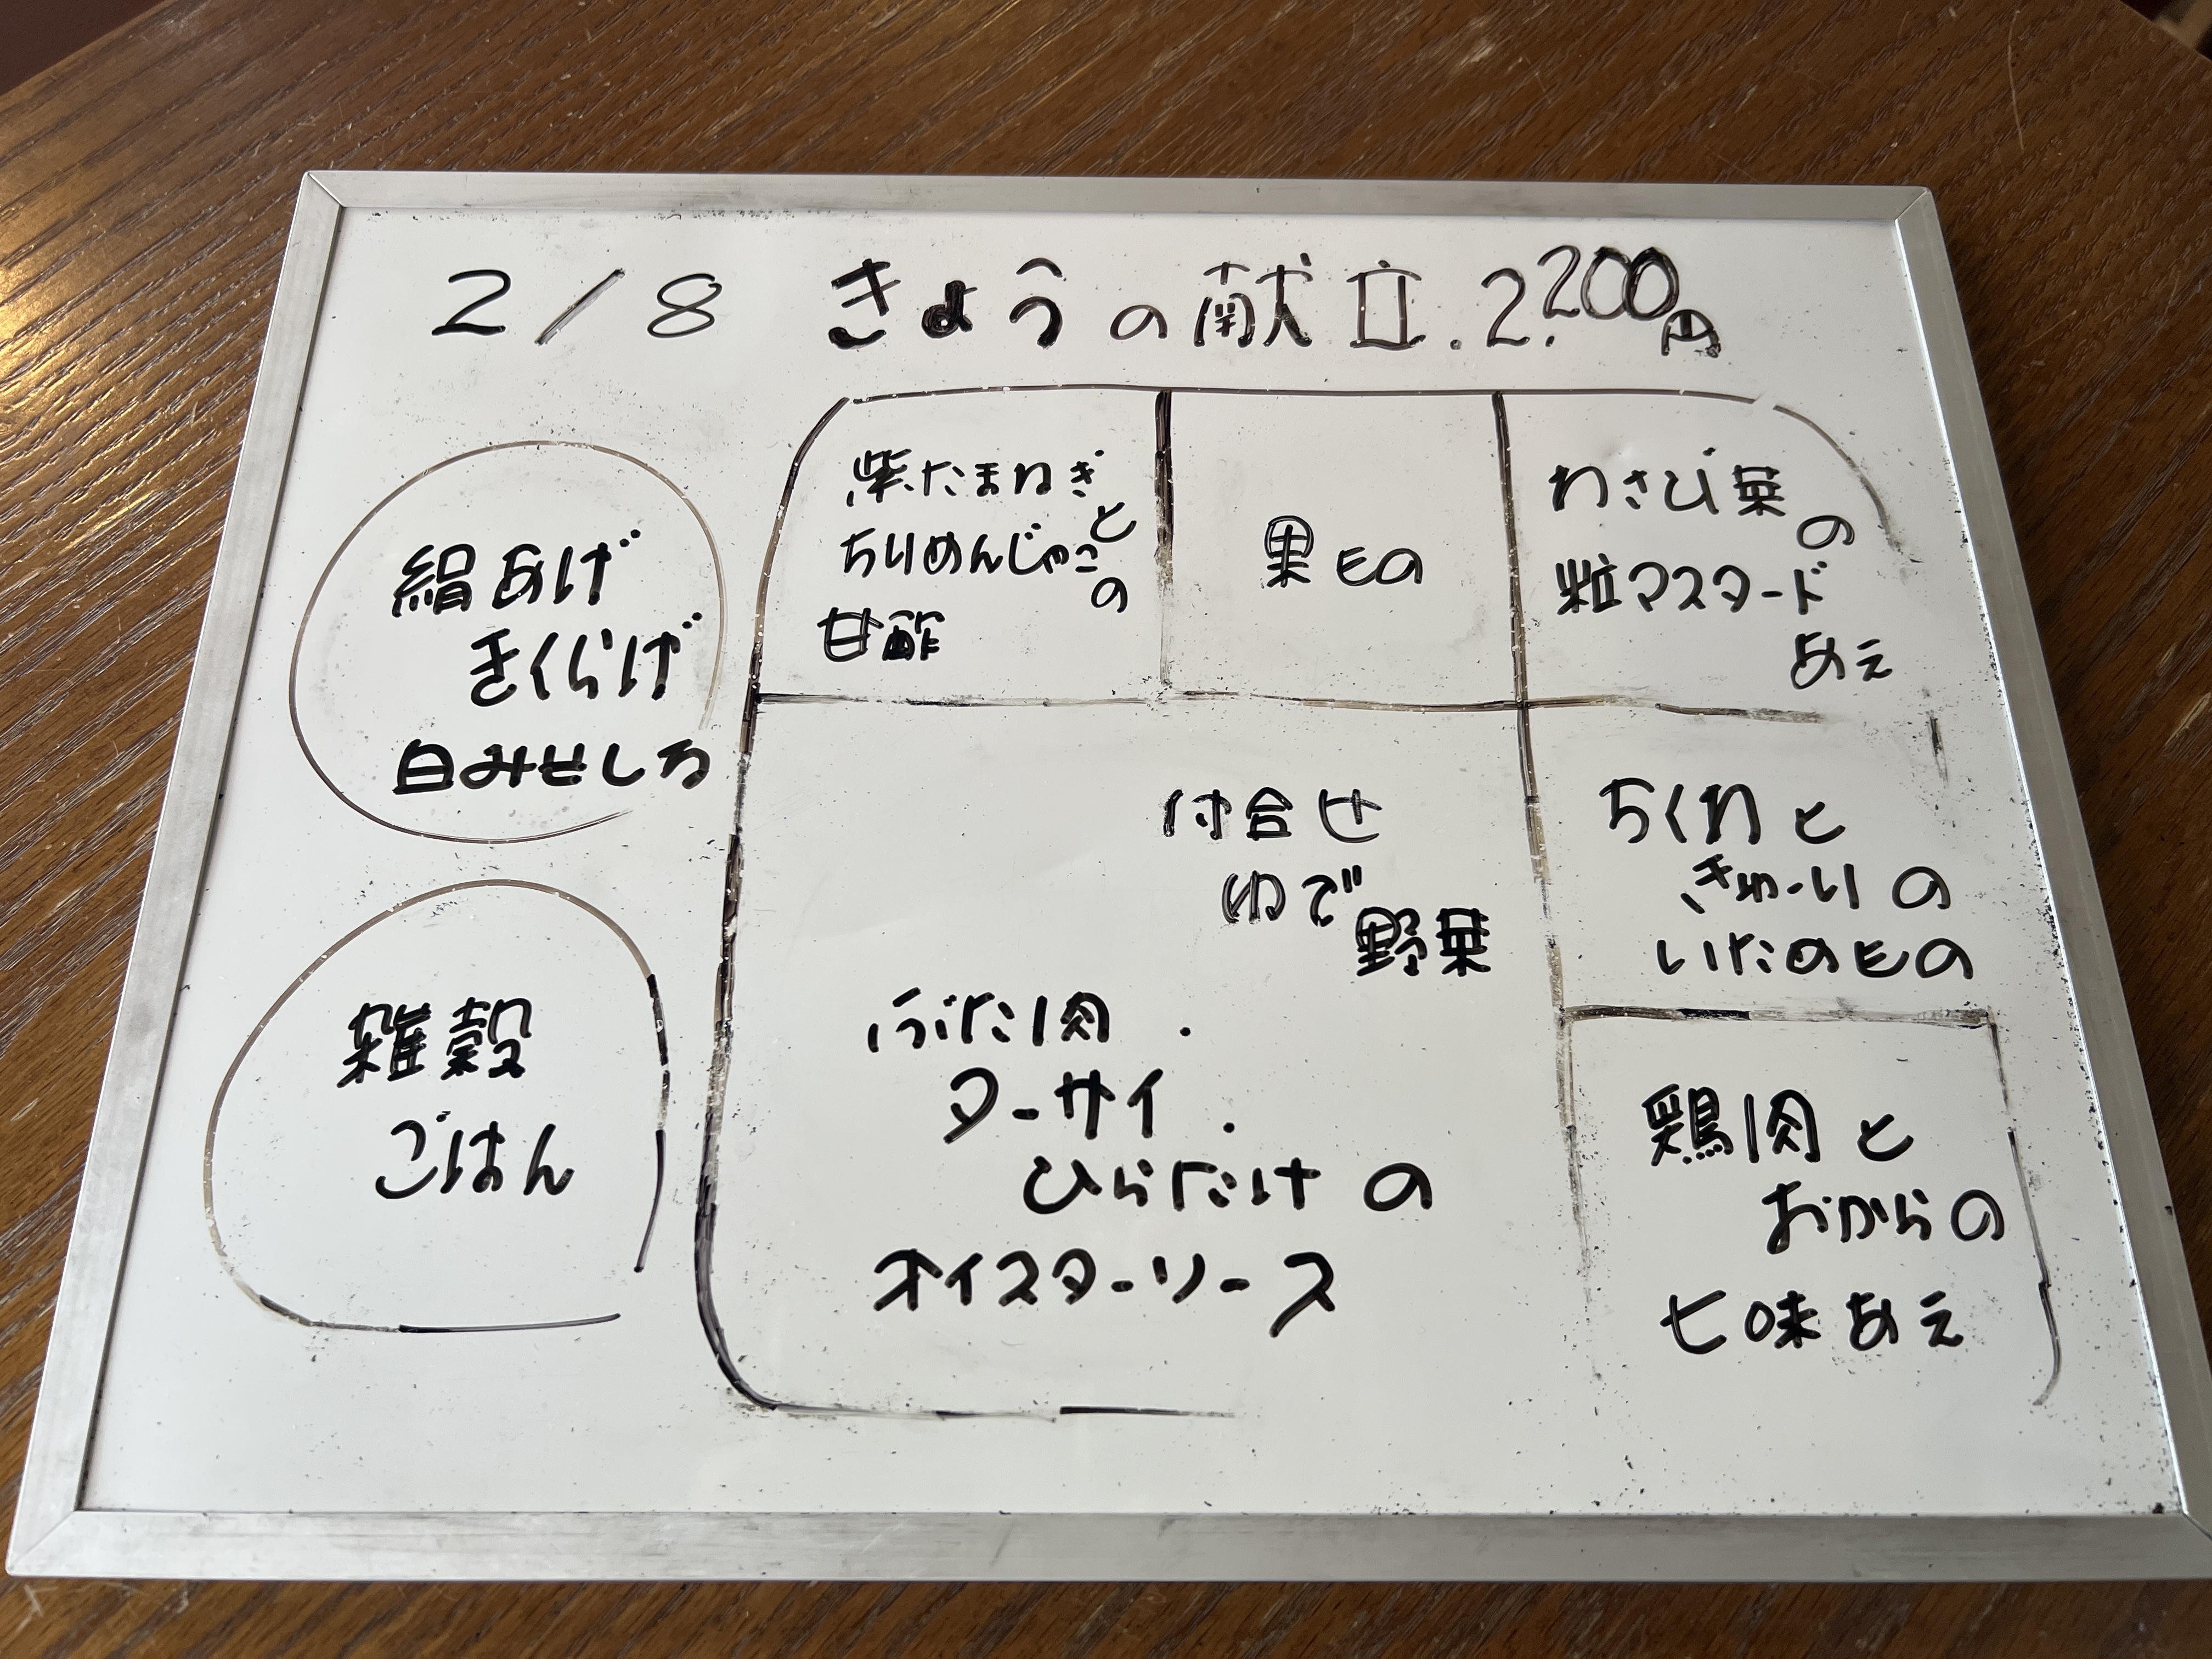 2/8 きょうの献立.2.200円
絹あげ
きくらげ
白みそしる
雑穀
ごはん
紫たまねぎ
と
ちりめんじゃこ
の
甘酢
果もの
わさび菜
の
粒マスタード
あえ
付合せ
ゆで
野菜
ぶた肉.
ターサイ.
ひらたけの
オイスターソース
ちくわと
きゅーりの
いためもの
鶏肉と
おからの
七味あえ